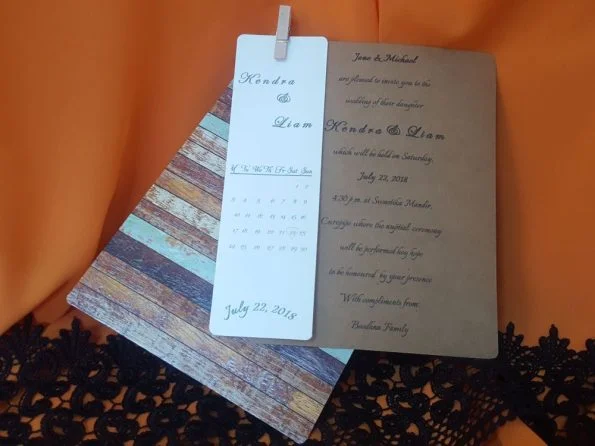 Kendra
&
Liam
M Tu We Th Fr Sat Sun
1 2
3 4 5 6 7 8 9
10 11 12 13 14 15 16
17 18 19 20 21 22 23
24 25 26 27 28 29 30
July 22, 2018
Jane & Michael
are pleased to invite you to the
wedding of their daughter
Kendra & Liam
which will be held on Saturday,
July 22, 2018
4:30 p.m. at Swastika Mandir,
Curepipe where the nuptial ceremony
will be performed hey hope
to be honoured by your presence
With compliments from:
Family